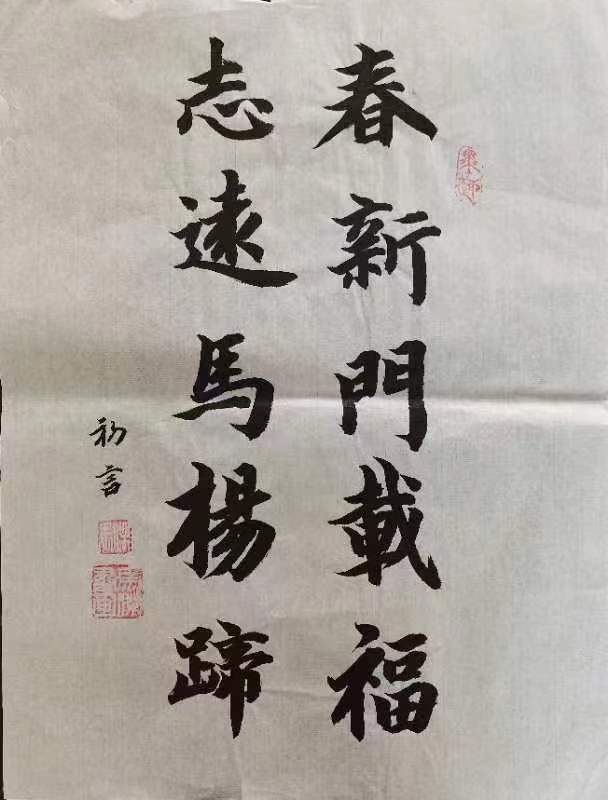 春新門載福
志遠馬楊蹄
初言